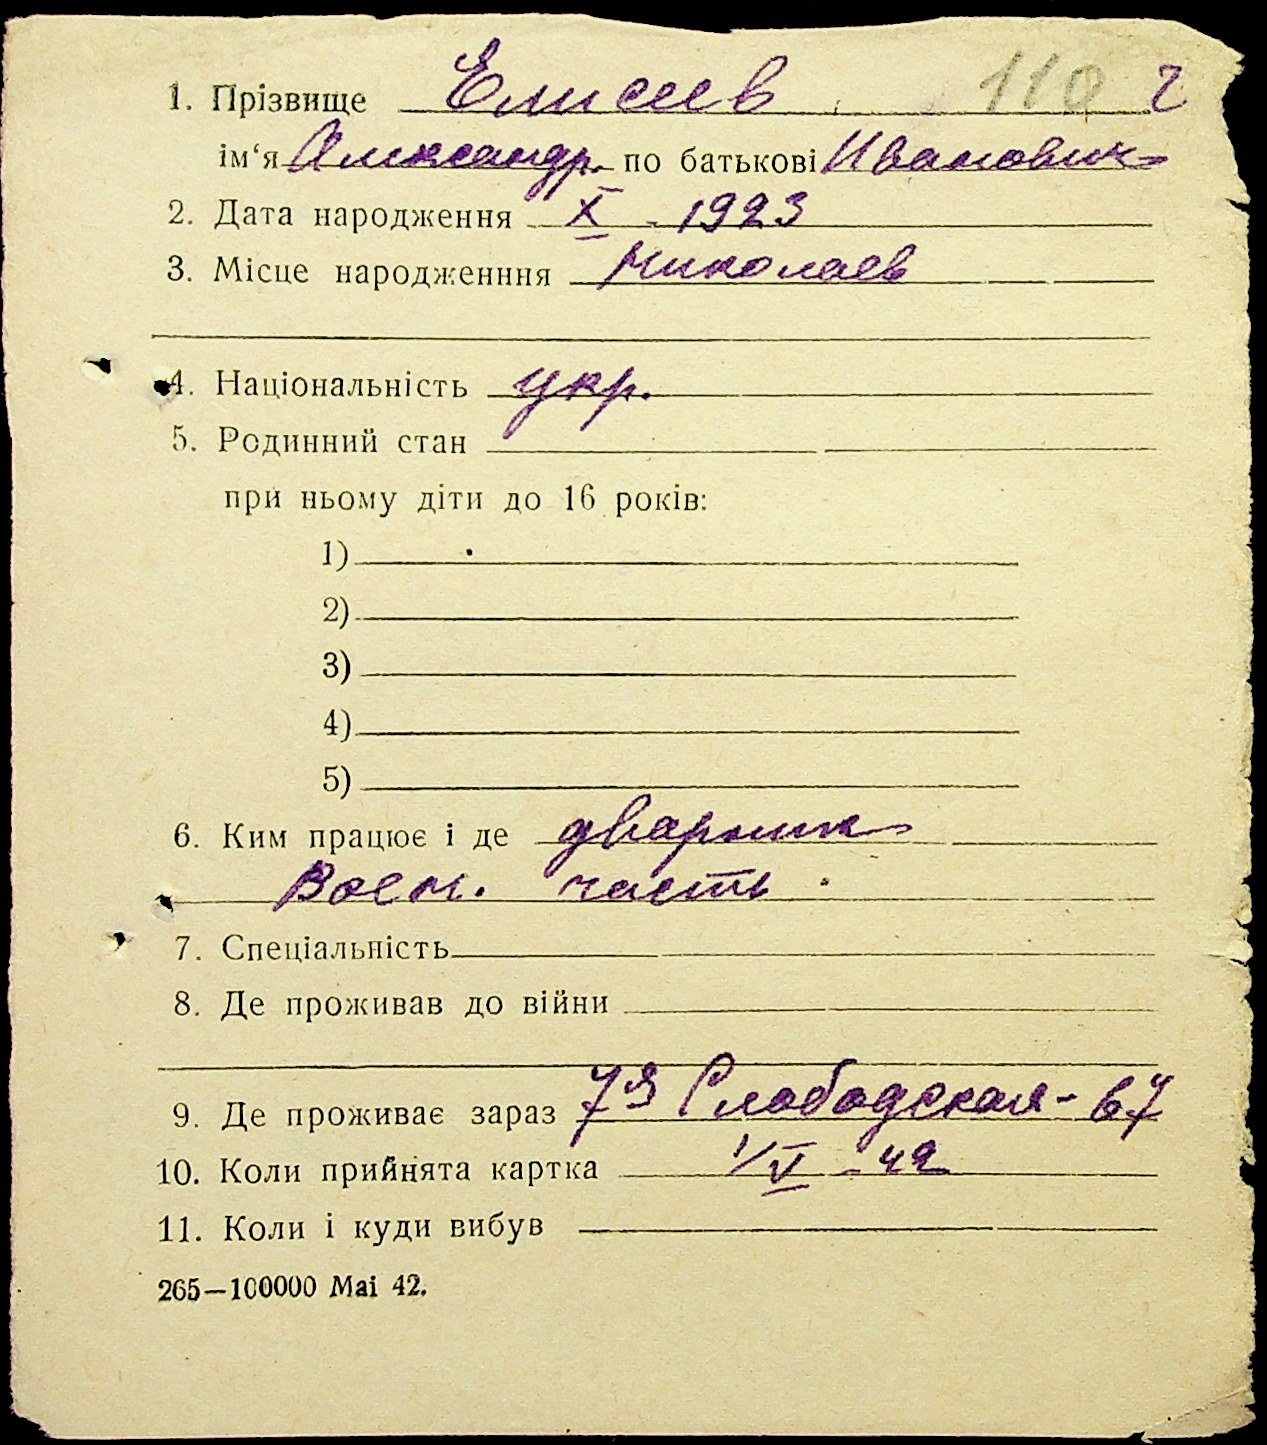 1. Прізвище Елисеев 110 2
ім‘я Александр. по батькові Иванович
2. Дата народження X 1923
3. Місце народженння Николаев
4. Національність укр.
5. Родинний стан
при ньому діти до 16 років:
1)
2)
3)
4)
5)
6. Ким працює і де дварник
Воен. часть
7. Спеціальність
8. Де проживав до війни
9. Де проживає зараз 7я Слободская-67
10. Коли прийнята картка 1/V-42
11. Коли і куди вибув
265—100000 Mai 42.